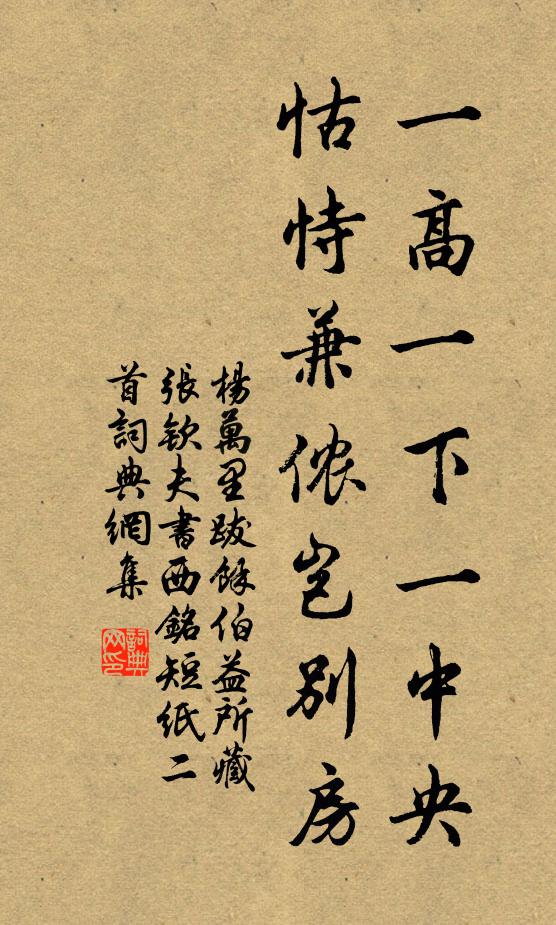 一高一下一中央
怙恃兼侬岂别房
楊萬里跋餘伯益所藏
張欽夫書西銘短紙二
首詞典網集
詞典网印